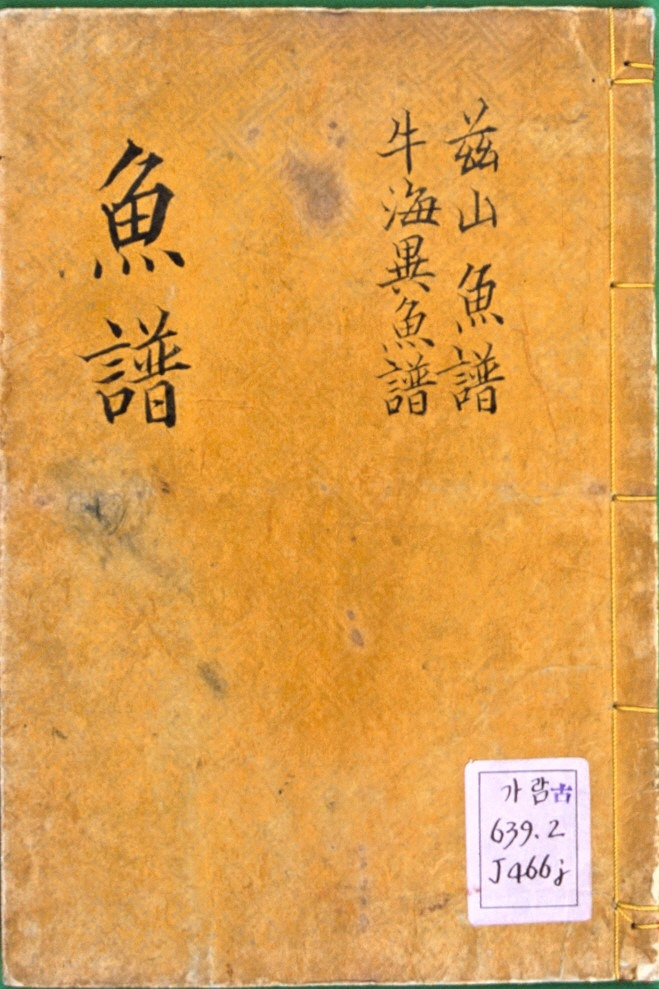 玆山魚譜
牛海異魚譜
魚譜
가람古
639.2
J466j